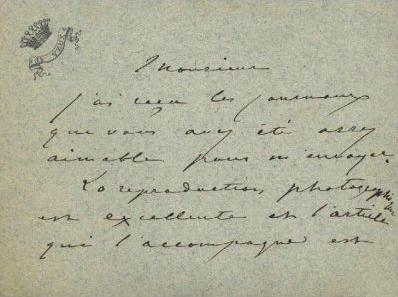 Monsieur
j'ai reçu les journaux
que vous avez été assez
aimable pour m'envoyer.
La reproduction photographique
est excellente et l'article
qui l'accompagne est